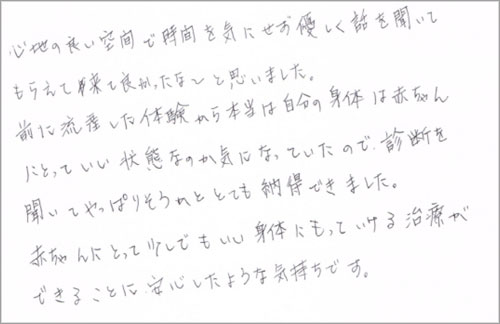 心地の良い空間で時間を気にせず優しく話を聞いて
もらえて来て良かったな〜と思いました。
前に流産した体験から本当は自分の身体は赤ちゃん
にとっていい状態なのか気になっていたので、診断を
聞いてやっぱりそうかととても納得できました。
赤ちゃんにとって少しでもいい身体にもっていける治療が
できることに安心したような気持ちです。